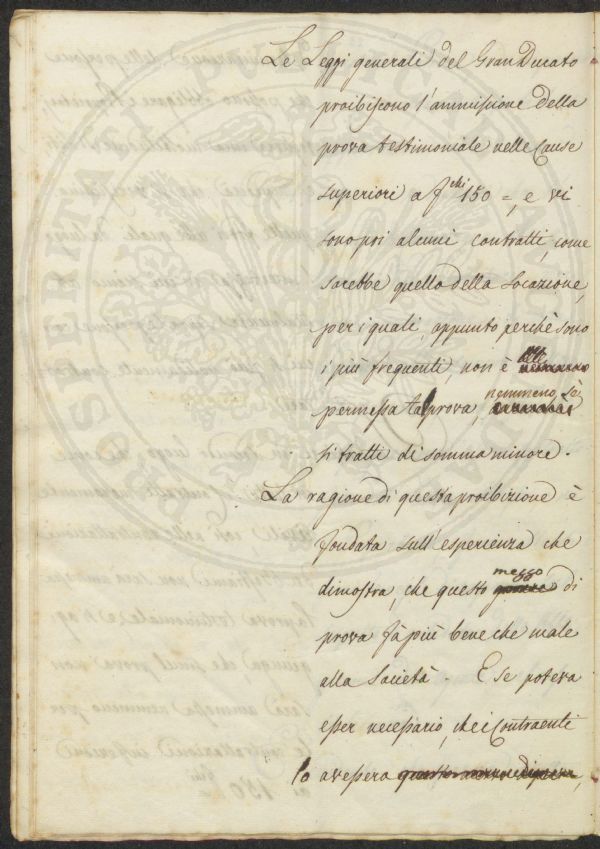 Le Leggi generali del GranDucato
proibiscono l'ammissione della
prova testimoniale nelle Cause
superiori a f.chi 150 =, e vi
sono poi alcuni contratti, come
sarebbe quello della Locazione,
per i quali, appunto perchè sono
i più frequenti, non è
permessa tal prova, nemmeno, se
si tratti di somma minore.
La ragione di questa proibizione è
fondata sull'esperienza che
dimostra, che questo mezzo di
prova fà più bene che male
alla Società. E se poteva
esser necessario, che i Contraenti
lo avessero